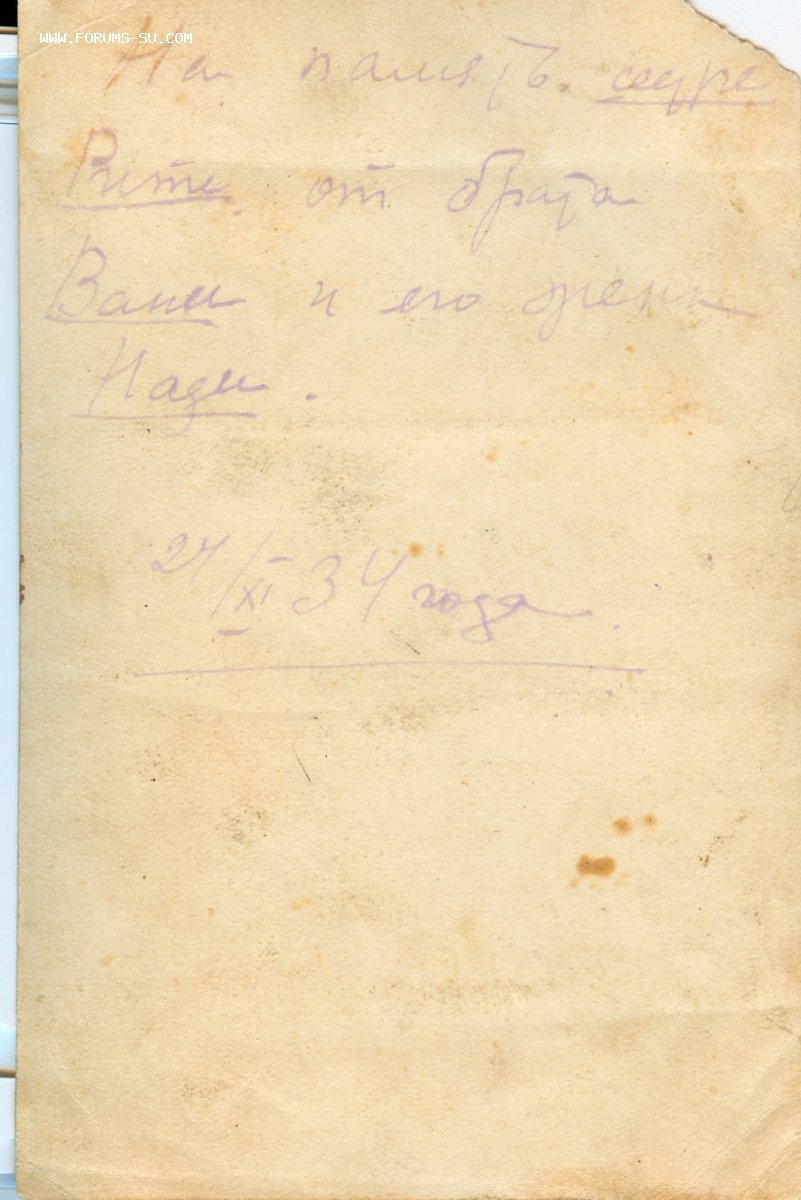 WWW.FORUMS-SU.COM
На память
от брата
Вани и его жены
Нади.
24/XI 34 года.